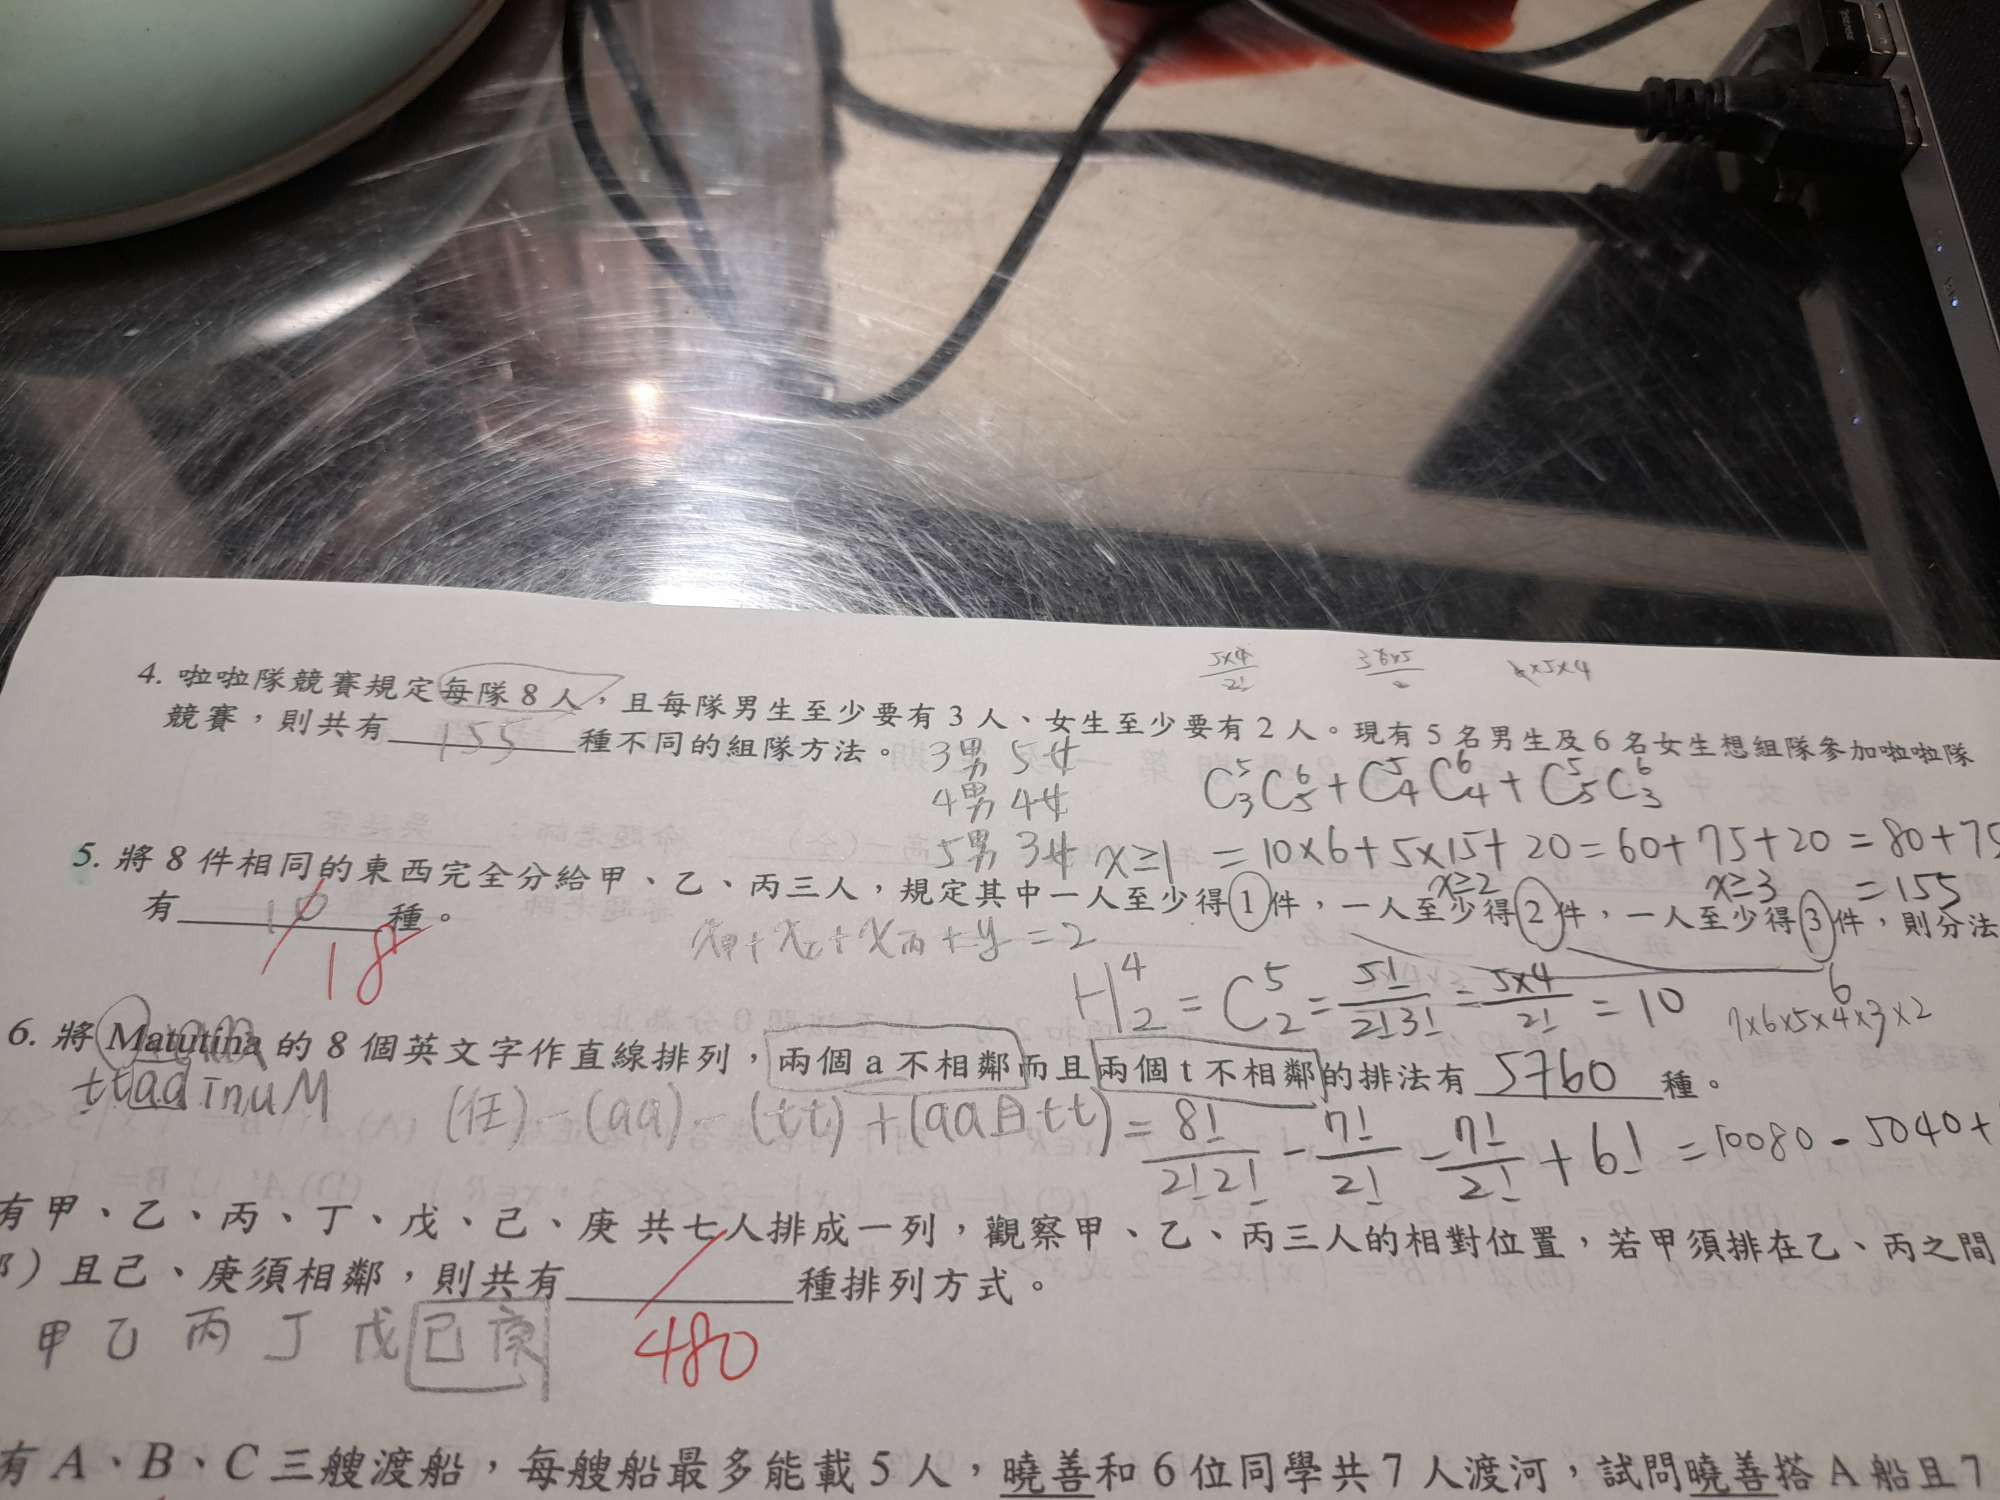 5×4/2!
4. 啦啦隊競賽規定每隊 8 人，且每隊男生至少要有 3 人、女生至少要有 2 人。現有 5 名男生及 6 名女生想組隊參加啦啦隊
競賽，則共有 155 種不同的組隊方法。
3男 5女
4男 4女
5男 3女
C⁵₃C⁶₅+C⁵₄C⁶₄+C⁵₅C⁶₃
=10×6+5×15+20=60+75+20=80+75
=155
x≥1 x≥2 x≥3
5. 將 8 件相同的東西完全分給甲、乙、丙三人，規定其中一人至少得 1 件，一人至少得 2 件，一人至少得 3 件，則分法
有 10 種。
18
x甲+x乙+x丙+y=2
H⁴₂=C⁵₂=5!/2!3!=5×4/2!=10
6
7×6×5×4×3×2
6. 將 Matutina 的 8 個英文字作直線排列，兩個 a 不相鄰而且兩個 t 不相鄰的排法有 5760 種。
ttaainuM
(任)-(aa)-(tt)+(aa且tt)=8!/2!2!-7!/2!-7!/2!+6!=10080-5040+
有甲、乙、丙、丁、戊、己、庚 共七人排成一列，觀察甲、乙、丙三人的相對位置，若甲須排在乙、丙之間
）且己、庚須相鄰，則共有 種排列方式。
480
甲 乙 丙 丁 戊 己 庚
有 A、B、C 三艘渡船，每艘船最多能載 5 人，曉善和 6 位同學共 7 人渡河，試問曉善搭 A 船且 7